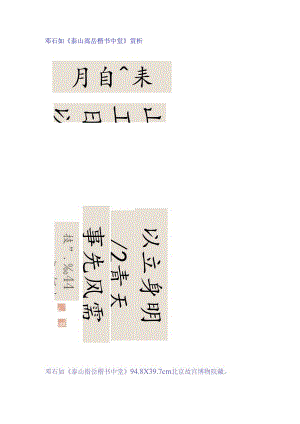 邓石如《泰山嵩岳楷书中堂》赏析
月自^耒
以立身明
/2青天
事先风需
邓石如《泰山指岳楷书中堂》94.8X39.7cm北京故宫博物院藏。